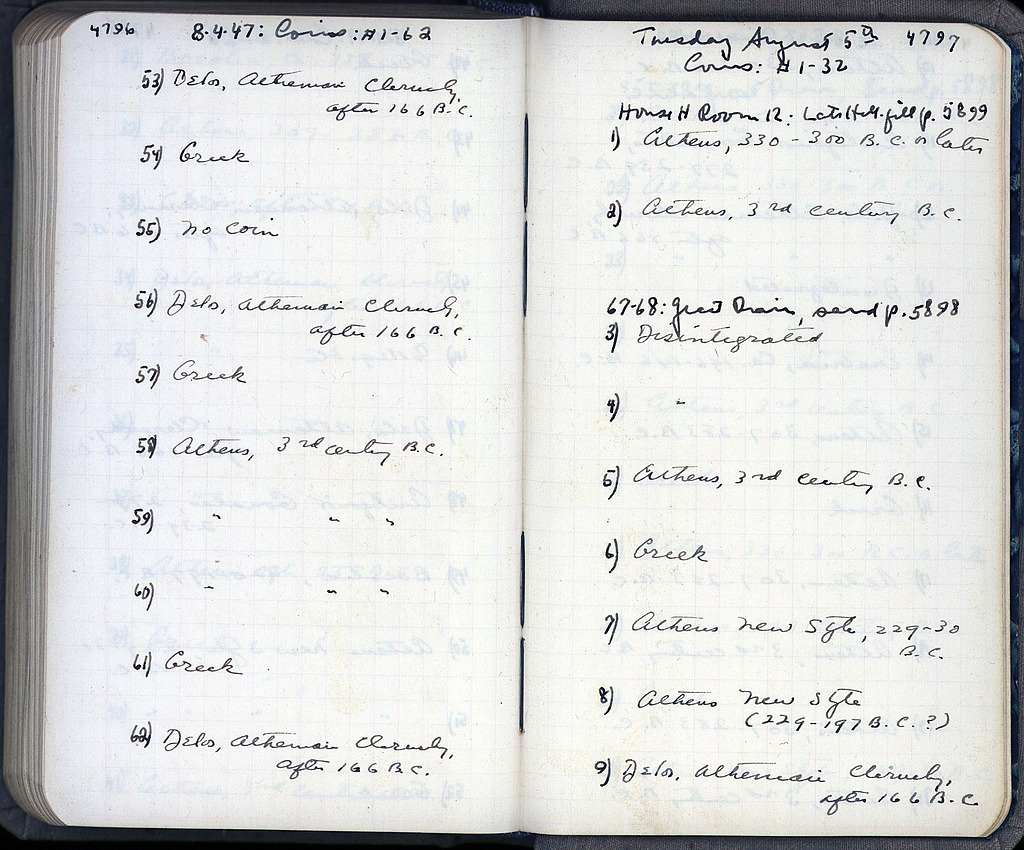 4796 8-4-47: Coins: #1-62
53) Delos, Athenian Cleruchy,
after 166 B.C.
54) Greek
55) No coin
56) Delos, Athenian Cleruchy,
after 166 B.C.
57) Greek
58) Athens, 3rd century B.C.
59) " " "
60) " " "
61) Greek
62) Delos, Athenian Cleruchy,
after 166 B.C.
Tuesday August 5th 4797
Coins: #1-32
House H Room 12: Late Hell. fill p. 5899
1) Athens, 330-300 B.C. or later
2) Athens, 3rd century B.C.
67-68: Great Drain, sand p. 5898
3) Disintegrated
4) "
5) Athens, 3rd century B.C.
6) Greek
7) Athens New Style, 229-30
B.C.
8) Athens New Style
(229-197 B.C.?)
9) Delos, Athenian Cleruchy,
after 166 B.C.